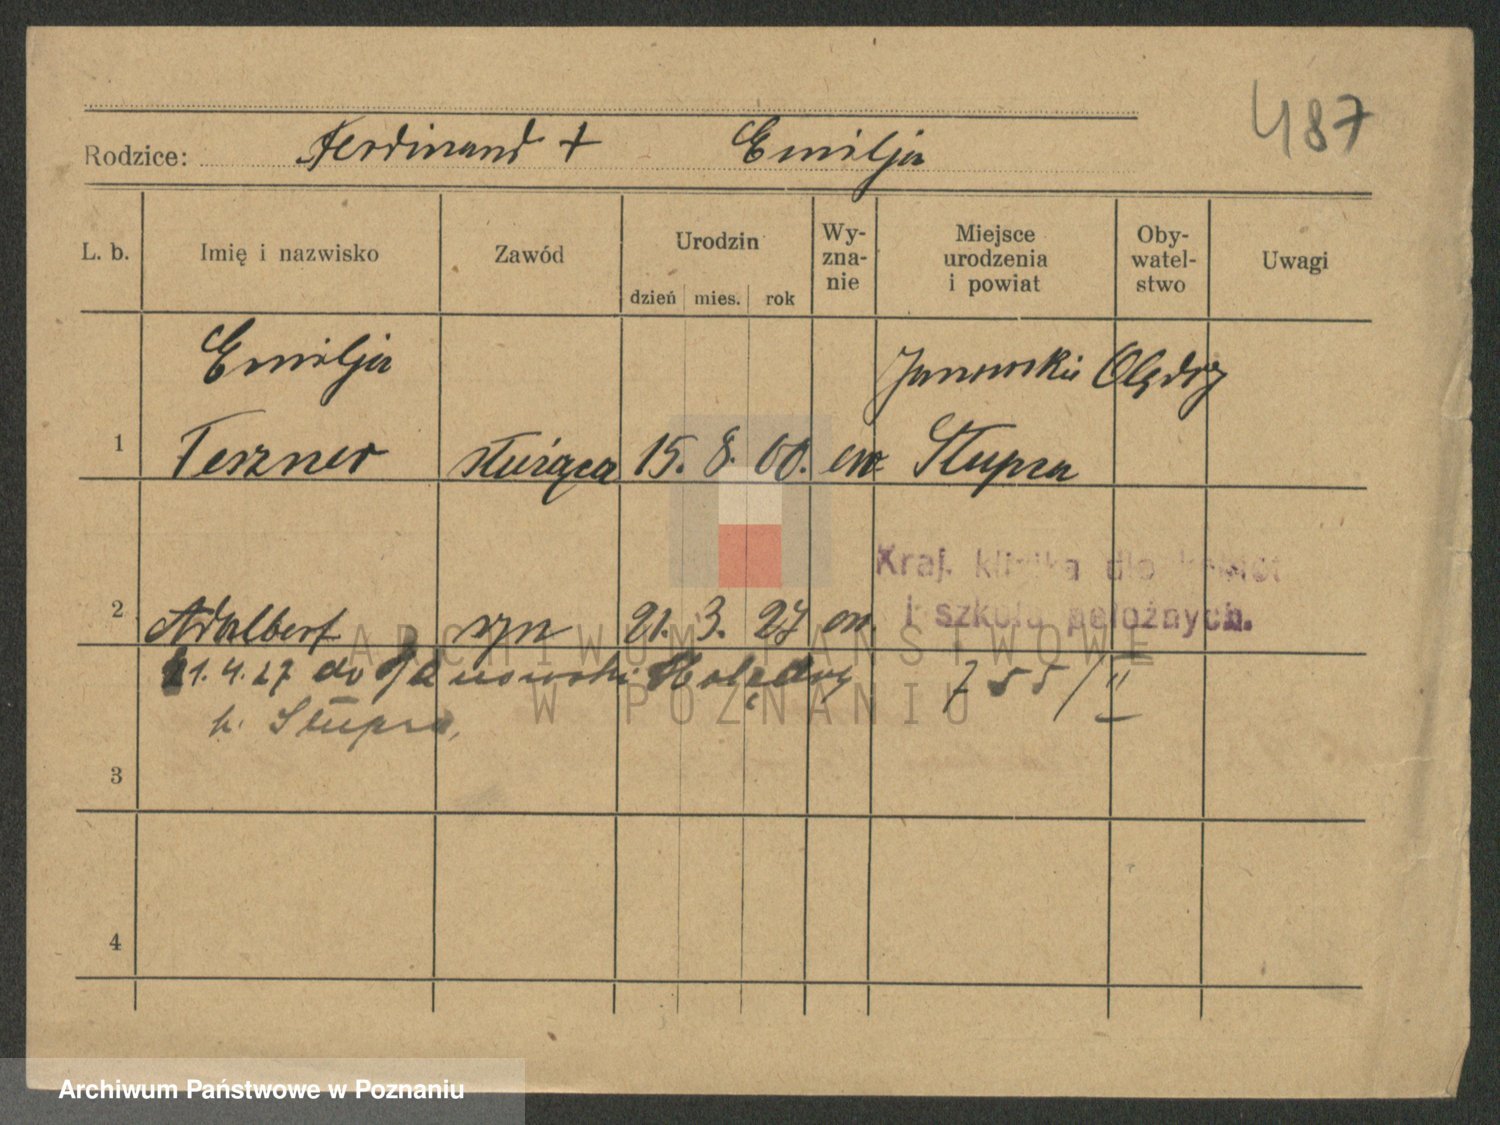 487
Rodzice: Ferdinand + Emilja
L. b. Imię i nazwisko Zawód Urodzin dzień mies. rok Wy-zna-nie Miejsce urodzenia i powiat Oby-watel-stwo Uwagi
Emilja Janowskie Olędry
1 Teszner służąca 15. 8. 00. ew. Słupca
Kraj. klinika dla kobiet
i szkoła położnych.
2 Adalbert syn 21. 3. 27 ew.
21.4.27 do Janowski Holędry 755/II
p. Słupca,
3
4
ARCHIWUM PAŃSTWOWE
W POZNANIU
Archiwum Państwowe w Poznaniu